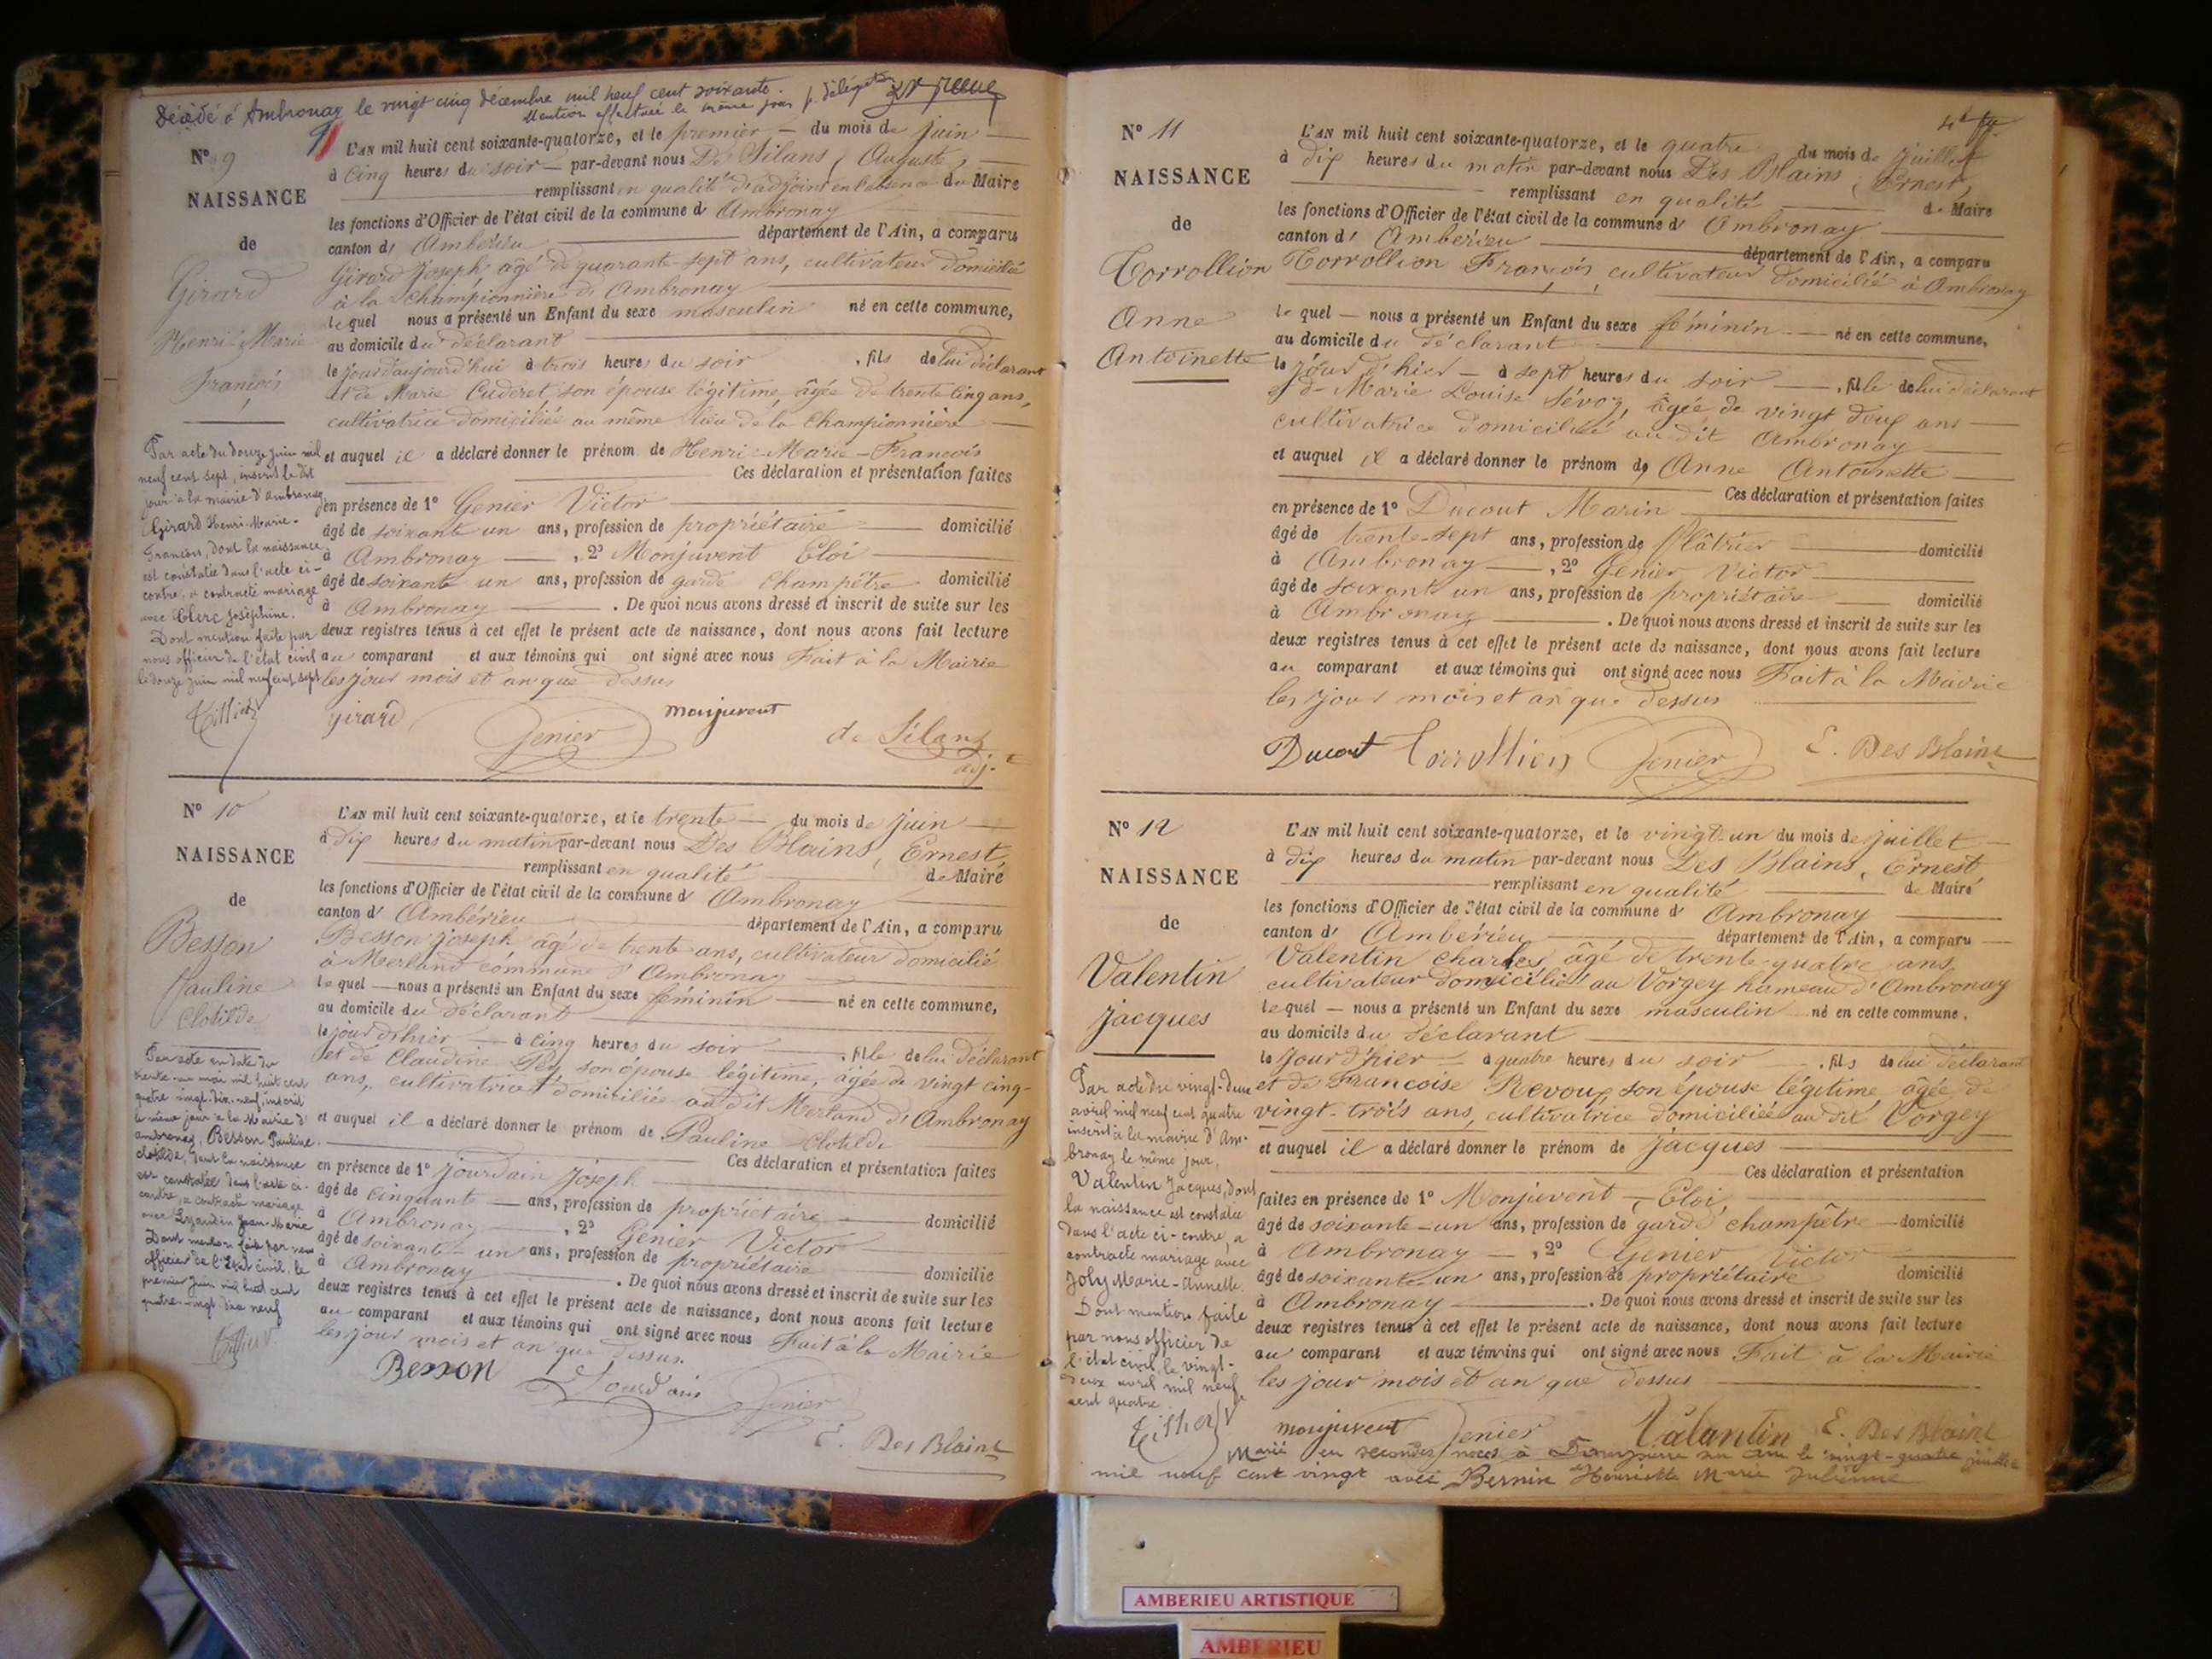 Décédé à Ambronay le vingt cinq décembre mil neuf cent soixante.
Mention effectuée le même jour p. délégation
N° 9
NAISSANCE
de
Girard
Henri-Marie
François
L'AN mil huit cent soixante-quatorze, et le premier du mois de juin
à cinq heures du soir par-devant nous De Silans, Auguste,
remplissant en qualité d'adjoint en l'absence du Maire
les fonctions d'Officier de l'état civil de la commune d'Ambronay
canton d'Ambérieu département de l'Ain, a comparu
Girard Joseph, âgé de quarante-sept ans, cultivateur domicilié
à la Championnière d'Ambronay
lequel nous a présenté un Enfant du sexe masculin né en cette commune,
au domicile du déclarant
le jour d'aujourd'hui à trois heures du soir, fils de lui déclarant
et de Marie Cuderet, son épouse légitime, âgée de trente cinq ans,
cultivatrice domiciliée au même lieu de la Championnière
et auquel il a déclaré donner le prénom de Henri-Marie-François
Ces déclaration et présentation faites
en présence de 1° Genier Victor
âgé de soixante un ans, profession de propriétaire domicilié
à Ambronay, 2° Monjuvent Eloi
âgé de soixante un ans, profession de garde champêtre domicilié
à Ambronay. De quoi nous avons dressé et inscrit de suite sur les
deux registres tenus à cet effet le présent acte de naissance, dont nous avons fait lecture
au comparant et aux témoins qui ont signé avec nous Fait à la Mairie
les jour mois et an que dessus
Par acte du douze juin mil
neuf cent sept, inscrit le dit
jour à la mairie d'Ambronay,
Girard Henri-Marie-
François, dont la naissance
est constatée dans l'acte ci-
contre, a contracté mariage
avec Clerc Joséphine.
Dont mention faite par
nous officier de l'état civil
le douze juin mil neuf cent sept
girard Genier monjuvent de Silans
adj.t
N° 10
NAISSANCE
de
Besson
Pauline
Clotilde
L'AN mil huit cent soixante-quatorze, et le trente du mois de juin
à dix heures du matin par-devant nous Des Blains, Ernest,
remplissant en qualité de Maire
les fonctions d'Officier de l'état civil de la commune d'Ambronay
canton d'Ambérieu département de l'Ain, a comparu
Besson Joseph âgé de trente ans, cultivateur domicilié
à Merland commune d'Ambronay
lequel nous a présenté un Enfant du sexe féminin né en cette commune,
au domicile du déclarant
le jour d'hier à cinq heures du soir, fille de lui déclarant
et de Claudine Pey, son épouse légitime, âgée de vingt cinq
ans, cultivatrice domiciliée au dit Merland d'Ambronay
et auquel il a déclaré donner le prénom de Pauline Clotilde
Ces déclaration et présentation faites
en présence de 1° Jourdain Joseph
âgé de cinquante ans, profession de propriétaire domicilié
à Ambronay, 2° Genier Victor
âgé de soixante-un ans, profession de propriétaire domicilié
à Ambronay. De quoi nous avons dressé et inscrit de suite sur les
deux registres tenus à cet effet le présent acte de naissance, dont nous avons fait lecture
au comparant et aux témoins qui ont signé avec nous Fait à la Mairie
les jour mois et an que dessus.
Par acte en date du
trente-un mai mil huit cent
quatre-vingt-dix-neuf, inscrit
le même jour à la Mairie d'
Ambronay, Besson Pauline
Clotilde, dont la naissance
est constatée dans l'acte ci-
contre, a contracté mariage
avec Jean-Marie
Dont mention faite par nous
officier de l'Etat civil, le
premier juin mil huit cent
quatre-vingt dix neuf
Besson Jourdain Genier
E. Des Blains
N° 11
NAISSANCE
de
Corrollion
Anne
Antoinette
L'AN mil huit cent soixante-quatorze, et le quatre du mois de juillet
à dix heures du matin par-devant nous Des Blains, Ernest,
remplissant en qualité de Maire
les fonctions d'Officier de l'état civil de la commune d'Ambronay
canton d'Ambérieu département de l'Ain, a comparu
Corrollion François, cultivateur domicilié à Ambronay
lequel nous a présenté un Enfant du sexe féminin né en cette commune,
au domicile du déclarant
le jour d'hier à sept heures du soir, fille de lui déclarant
et de Marie Louise Sévoz, âgée de vingt deux ans
cultivatrice domiciliée au dit Ambronay
et auquel il a déclaré donner le prénom de Anne Antoinette
Ces déclaration et présentation faites
en présence de 1° Ducout Marin
âgé de trente-sept ans, profession de Plâtrier domicilié
à Ambronay, 2° Genier Victor
âgé de soixante un ans, profession de propriétaire domicilié
à Ambronay. De quoi nous avons dressé et inscrit de suite sur les
deux registres tenus à cet effet le présent acte de naissance, dont nous avons fait lecture
au comparant et aux témoins qui ont signé avec nous Fait à la Mairie
les jour mois et an que dessus
Ducout Corrollion Genier E. Des Blains
N° 12
NAISSANCE
de
Valentin
Jacques
L'AN mil huit cent soixante-quatorze, et le vingt-un du mois de juillet
à dix heures du matin par-devant nous Des Blains, Ernest,
remplissant en qualité de Maire
les fonctions d'Officier de l'état civil de la commune d'Ambronay
canton d'Ambérieu département de l'Ain, a comparu
Valentin Charles, âgé de trente-quatre ans
cultivateur domicilié au Vorgey hameau d'Ambronay
lequel nous a présenté un Enfant du sexe masculin né en cette commune.
au domicile du déclarant
le jour d'hier à quatre heures du soir, fils de lui déclarant
et de Françoise Revoux, son épouse légitime, âgée de
vingt-trois ans, cultivatrice domiciliée au dit Vorgey
et auquel il a déclaré donner le prénom de Jacques
Ces déclaration et présentation
faites en présence de 1° Monjuvent, Eloi,
âgé de soixante-un ans, profession de garde champêtre domicilié
à Ambronay, 2° Genier Victor
âgé de soixante-un ans, profession de propriétaire domicilié
à Ambronay. De quoi nous avons dressé et inscrit de suite sur les
deux registres tenus à cet effet le présent acte de naissance, dont nous avons fait lecture
au comparant et aux témoins qui ont signé avec nous Fait à la Mairie
les jour mois et an que dessus
Par acte du vingt-deux
avril mil neuf cent quatre
inscrit à la mairie d'Am-
bronay le même jour,
Valentin Jacques, dont
la naissance est constatée
dans l'acte ci-contre, a
contracté mariage avec
Joly Marie-Annette.
Dont mention faite
par nous officier de
l'état civil le vingt-
deux avril mil neuf
cent quatre
monjuvent Genier Valantin E. Des Blains
Marié en secondes noces à le vingt-quatre juillet
mil neuf cent vingt avec Bernin Henriette Marie Julienne
AMBERIEU ARTISTIQUE
AMBERIEU